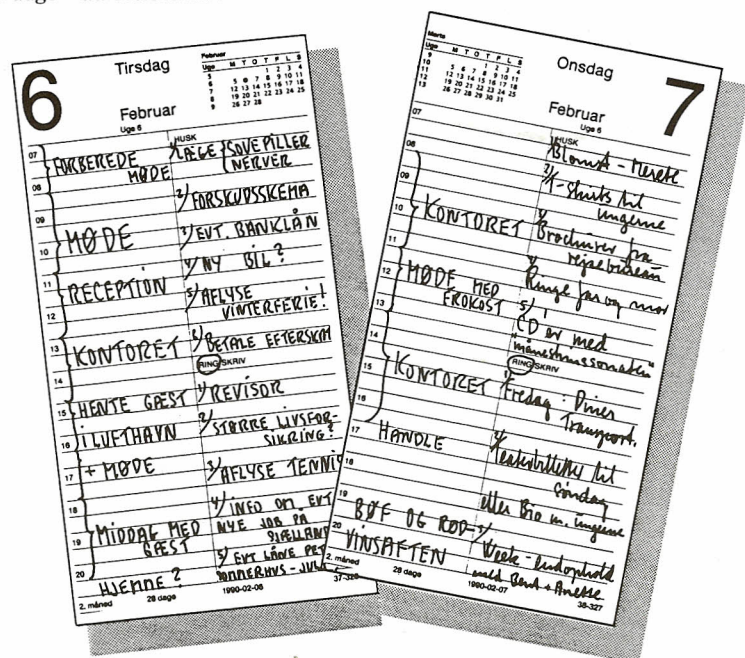 6
Tirsdag
Februar
Uge 6
Februar
Uge M T O T F L S
5 1 2 3 4
6 5 6 7 8 9 10 11
7 12 13 14 15 16 17 18
8 19 20 21 22 23 24 25
9 26 27 28
HUSK
07 FORBEREDE
MØDE
08
09
10 MØDE
11 RECEPTION
12
13 KONTORET
14
15 HENTE GÆST
16 I LUFTHAVN
17 + MØDE
18
19 MIDDAG MED
GÆST
20
HJEMME?
1/ LÆGE {SOVEPILLER
{NERVER
2/ FORSKUDSSKEMA
3/ EVT. BANKLÅN
4/ NY BIL?
5/ AFLYSE
VINTERFERIE!
6/ BETALE EFTERSKAT
RING/SKRIV
1/ REVISOR
2/ STØRRE LIVSFOR-
SIKRING?
3/ AFLYSE TENNIS
4/ INFO OM EVT
NYE JOB PÅ
SJÆLLAND
5/ EVT LÅNE
SOMMERHUS - JULI
2. måned
28 dage
1990-02-06
37-328
Onsdag
7
Februar
Uge 6
Marts
Uge M T O T F L S
9 1 2 3 4
10 5 6 7 8 9 10 11
11 12 13 14 15 16 17 18
12 19 20 21 22 23 24 25
13 26 27 28 29 30 31
HUSK
07
08
09
10 KONTORET
11
12 MØDE MED
FROKOST
13
14
15 KONTORET
16
17 HANDLE
18
19
BØF OG RØD-
20 VINSAFTEN
1/ Blomst - Merete
2/ T-shirts til
ungerne
3/ Brochurer fra
rejsebureau
4/ Ringe far og mor
5/ CD'er med
"måneskinssonaten"
RING/SKRIV
1/ Fredag: Diner
Transport.
2/ Teaterbilletter til
Søndag
eller Bio m. ungerne
3/ Week-endophold
med Bent + Anette
2. måned
28 dage
1990-02-07
38-327